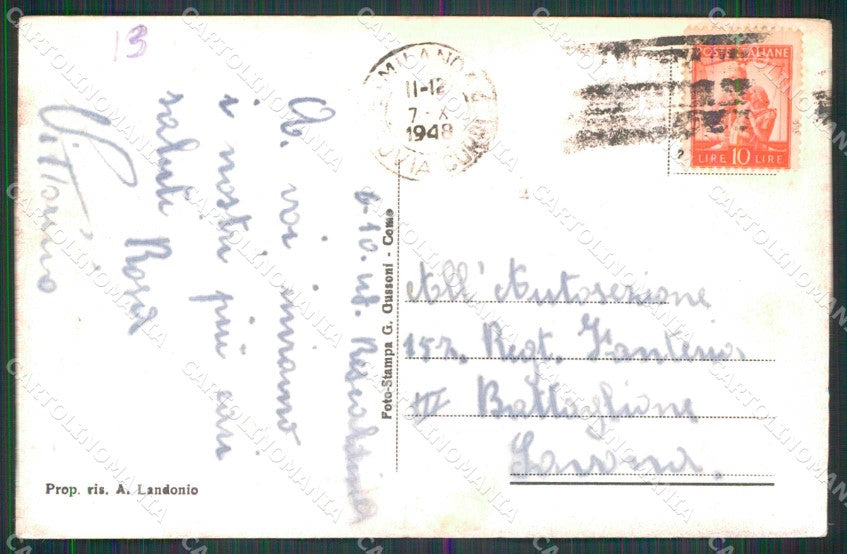 13
6-10.48. Rescaldina
A voi inviamo
i nostri più cari
saluti Rosa
Vittorino
Prop. ris. A. Landonio
Foto-Stampa G. Gussoni - Como
MILANO
11-12
7·X
1948
POSTE ITALIANE
LIRE 10 LIRE
All' Autosezione
152. Regt. Fanteria
III Battaglione
Savona.
CARTOLINOMANIA